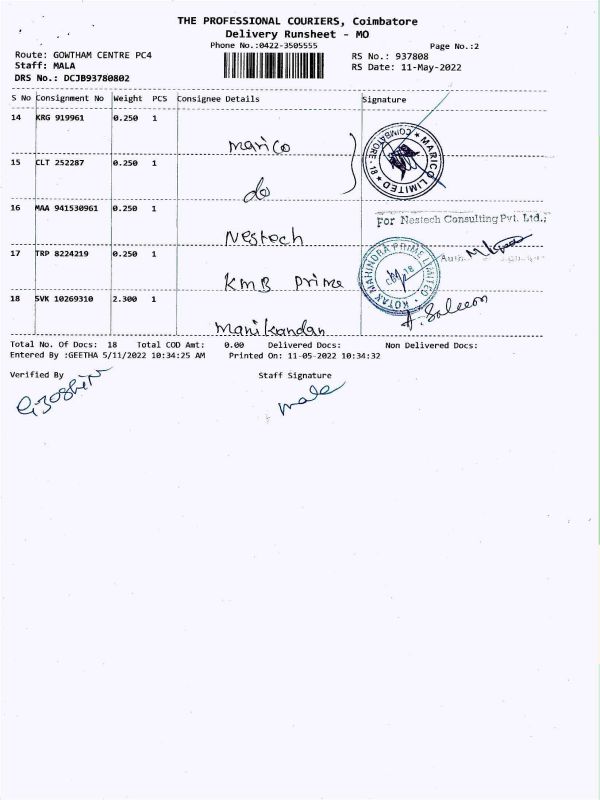 THE PROFESSIONAL COURIERS, Coimbatore
Delivery Runsheet - MO
Phone No.:0422-3505555 Page No.:2
Route: GOWTHAM CENTRE PC4 RS No.: 937808
Staff: MALA RS Date: 11-May-2022
DRS No.: DCJB93780802
S No Consignment No Weight PCS Consignee Details Signature
14 KRG 919961 0.250 1 Marico
MARICO LIMITED ★ COIMBATORE - 18 ★
15 CLT 252287 0.250 1 do
16 MAA 941530961 0.250 1 Nestech
For Nestech Consulting Pvt. Ltd.,
17 TRP 8224219 0.250 1 KMB Prime
KOTAK MAHINDRA PRIME LIMITED
18 SVK 10269310 2.300 1 Manikandan
A. Saleem
Total No. Of Docs: 18 Total COD Amt: 0.00 Delivered Docs: Non Delivered Docs:
Entered By :GEETHA 5/11/2022 10:34:25 AM Printed On: 11-05-2022 10:34:32
Verified By Staff Signature
mala